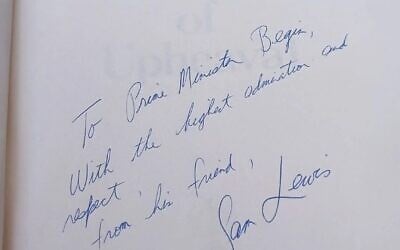 of
Upheaval
To Prime Minister Begin,
With the highest admiration and
respect,
from his friend,
Sam Lewis